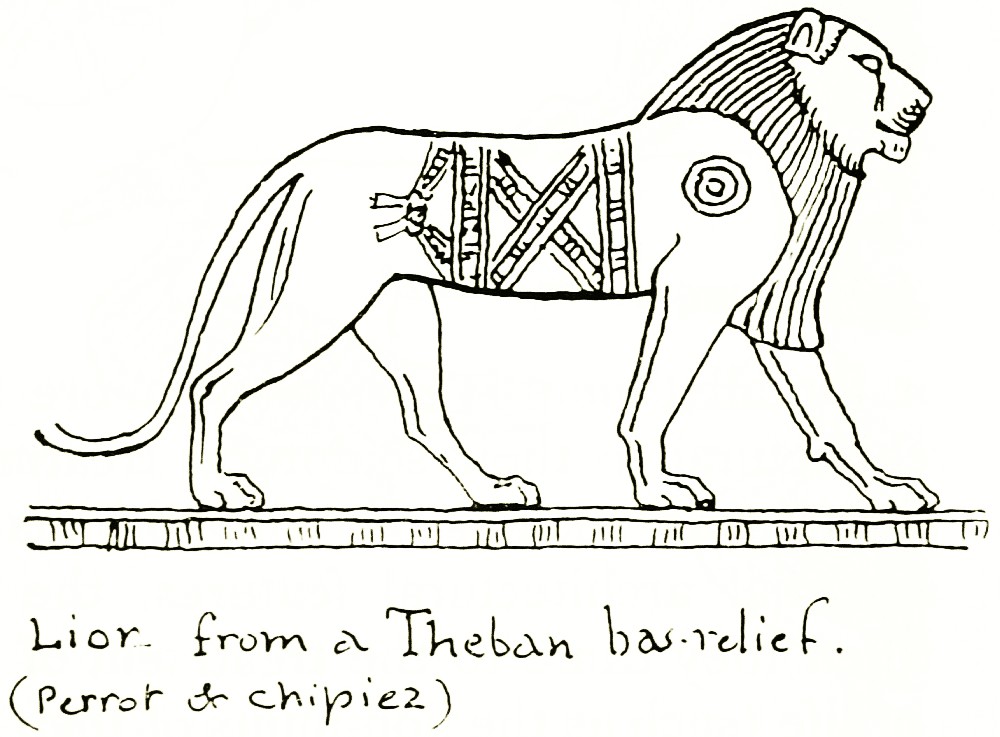 Lion from a Theban bas-relief.
(Perrot & Chipiez)